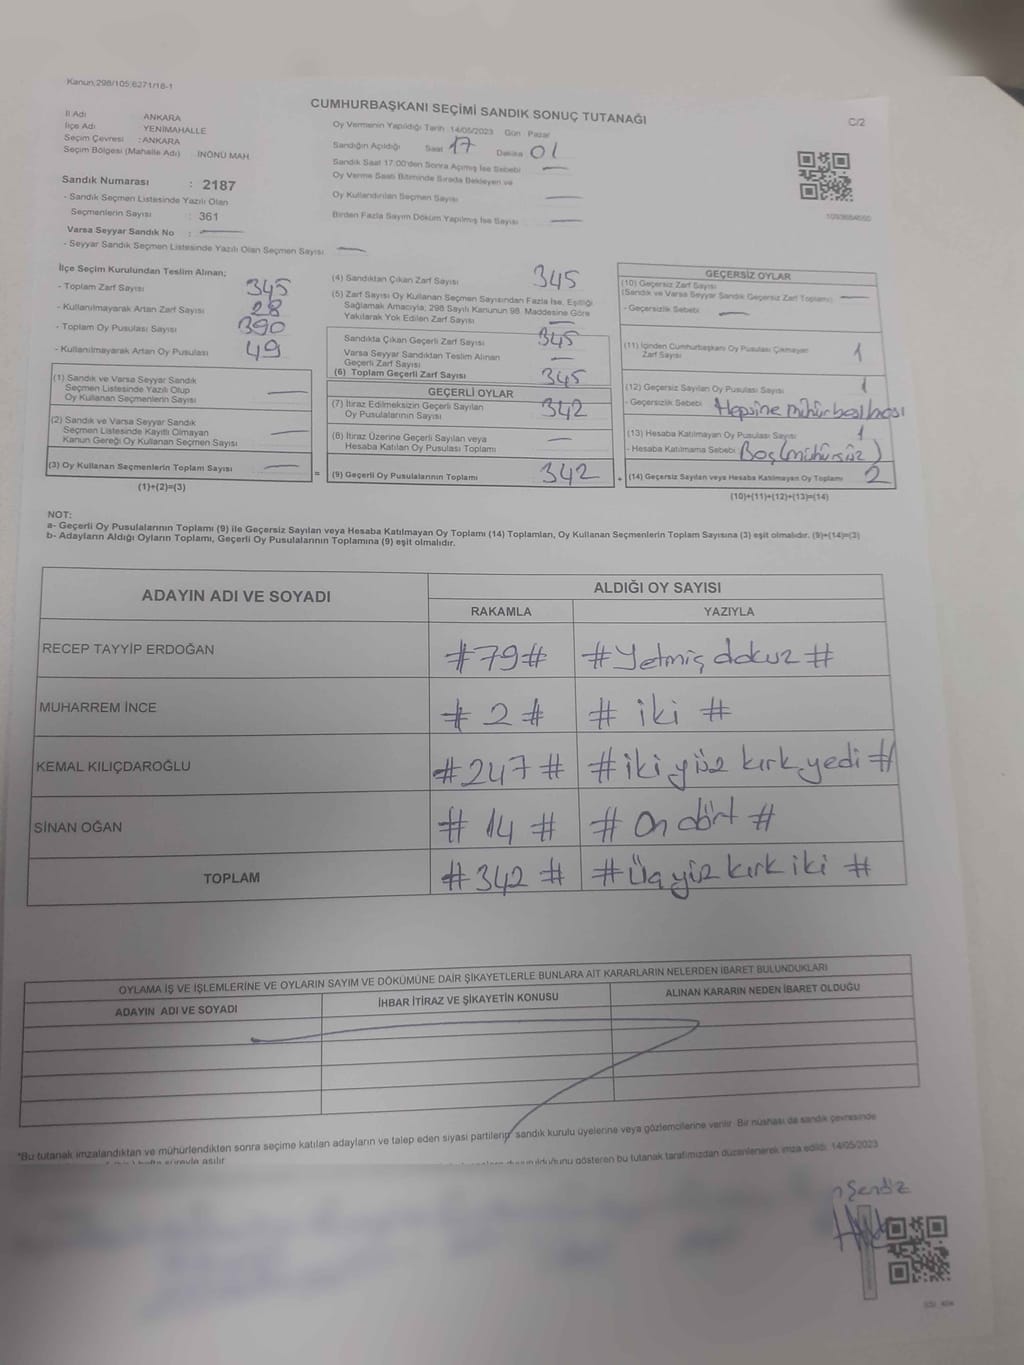 Kanun 298/105;6271/18-1
CUMHURBAŞKANI SEÇİMİ SANDIK SONUÇ TUTANAĞI
C/2
İl Adı ANKARA
İlçe Adı YENİMAHALLE
Seçim Çevresi : ANKARA
Seçim Bölgesi (Mahalle Adı) İNÖNÜ MAH.
Sandık Numarası : 2187
- Sandık Seçmen Listesinde Yazılı Olan
Seçmenlerin Sayısı : 361
Varsa Seyyar Sandık No :
- Seyyar Sandık Seçmen Listesinde Yazılı Olan Seçmen Sayısı
Oy Vermenin Yapıldığı Tarih 14/05/2023 Gün Pazar
Sandığın Açıldığı Saat 17 Dakika 01
Sandık Saat 17:00'den Sonra Açılmış İse Sebebi
Oy Verme Saati Bitiminde Sırada Bekleyen ve
Oy Kullandırılan Seçmen Sayısı
Birden Fazla Sayım Döküm Yapılmış İse Sayısı
İlçe Seçim Kurulundan Teslim Alınan;
- Toplam Zarf Sayısı 345
- Kullanılmayarak Artan Zarf Sayısı 28
- Toplam Oy Pusulası Sayısı 390
- Kullanılmayarak Artan Oy Pusulası 49
(1) Sandık ve Varsa Seyyar Sandık
Seçmen Listesinde Yazılı Olup
Oy Kullanan Seçmenlerin Sayısı
(2) Sandık ve Varsa Seyyar Sandık
Seçmen Listesinde Kayıtlı Olmayan
Kanun Gereği Oy Kullanan Seçmen Sayısı
(3) Oy Kullanan Seçmenlerin Toplam Sayısı
(1)+(2)=(3)
=
(4) Sandıktan Çıkan Zarf Sayısı 345
(5) Zarf Sayısı Oy Kullanan Seçmen Sayısından Fazla İse, Eşitliği
Sağlamak Amacıyla; 298 Sayılı Kanunun 98. Maddesine Göre
Yakılarak Yok Edilen Zarf Sayısı
Sandıkta Çıkan Geçerli Zarf Sayısı 345
Varsa Seyyar Sandıktan Teslim Alınan
Geçerli Zarf Sayısı
(6) Toplam Geçerli Zarf Sayısı 345
GEÇERLİ OYLAR
(7) İtiraz Edilmeksizin Geçerli Sayılan
Oy Pusulalarının Sayısı 342
(8) İtiraz Üzerine Geçerli Sayılan veya
Hesaba Katılan Oy Pusulası Toplamı
(9) Geçerli Oy Pusulalarının Toplamı 342
+
GEÇERSİZ OYLAR
(10) Geçersiz Zarf Sayısı
(Sandık ve Varsa Seyyar Sandık Geçersiz Zarf Toplamı)
- Geçersizlik Sebebi
(11) İçinden Cumhurbaşkanı Oy Pusulası Çıkmayan
Zarf Sayısı 1
(12) Geçersiz Sayılan Oy Pusulası Sayısı 1
- Geçersizlik Sebebi Hepsine mühür
(13) Hesaba Katılmayan Oy Pusulası Sayısı 1
- Hesaba Katılmama Sebebi Boş(mühürsüz)
(14) Geçersiz Sayılan veya Hesaba Katılmayan Oy Toplamı 2
(10)+(11)+(12)+(13)=(14)
NOT:
a- Geçerli Oy Pusulalarının Toplamı (9) ile Geçersiz Sayılan veya Hesaba Katılmayan Oy Toplamı (14) Toplamları, Oy Kullanan Seçmenlerin Toplam Sayısına (3) eşit olmalıdır. (9)+(14)=(3)
b- Adayların Aldığı Oyların Toplamı, Geçerli Oy Pusulalarının Toplamına (9) eşit olmalıdır.
ADAYIN ADI VE SOYADI ALDIĞI OY SAYISI
RAKAMLA YAZIYLA
RECEP TAYYİP ERDOĞAN #79# #Yetmiş dokuz#
MUHARREM İNCE # 2 # # iki #
KEMAL KILIÇDAROĞLU #247# #iki yüz kırk yedi#
SİNAN OĞAN # 14 # # On dört #
TOPLAM #342# #Üç yüz kırk iki #
OYLAMA İŞ VE İŞLEMLERİNE VE OYLARIN SAYIM VE DÖKÜMÜNE DAİR ŞİKAYETLERLE BUNLARA AİT KARARLARIN NELERDEN İBARET BULUNDUKLARI
ADAYIN ADI VE SOYADI İHBAR İTİRAZ VE ŞİKAYETİN KONUSU ALINAN KARARIN NEDEN İBARET OLDUĞU
*Bu tutanak imzalandıktan ve mühürlendikten sonra seçime katılan adayların ve talep eden siyasi partilerin sandık kurulu üyelerine veya gözlemcilerine verilir. Bir nüshası da sandık çevresinde
hafta süreyle asılır
gösteren bu tutanak tarafımızdan düzenlenerek imza edildi. 14/05/2023